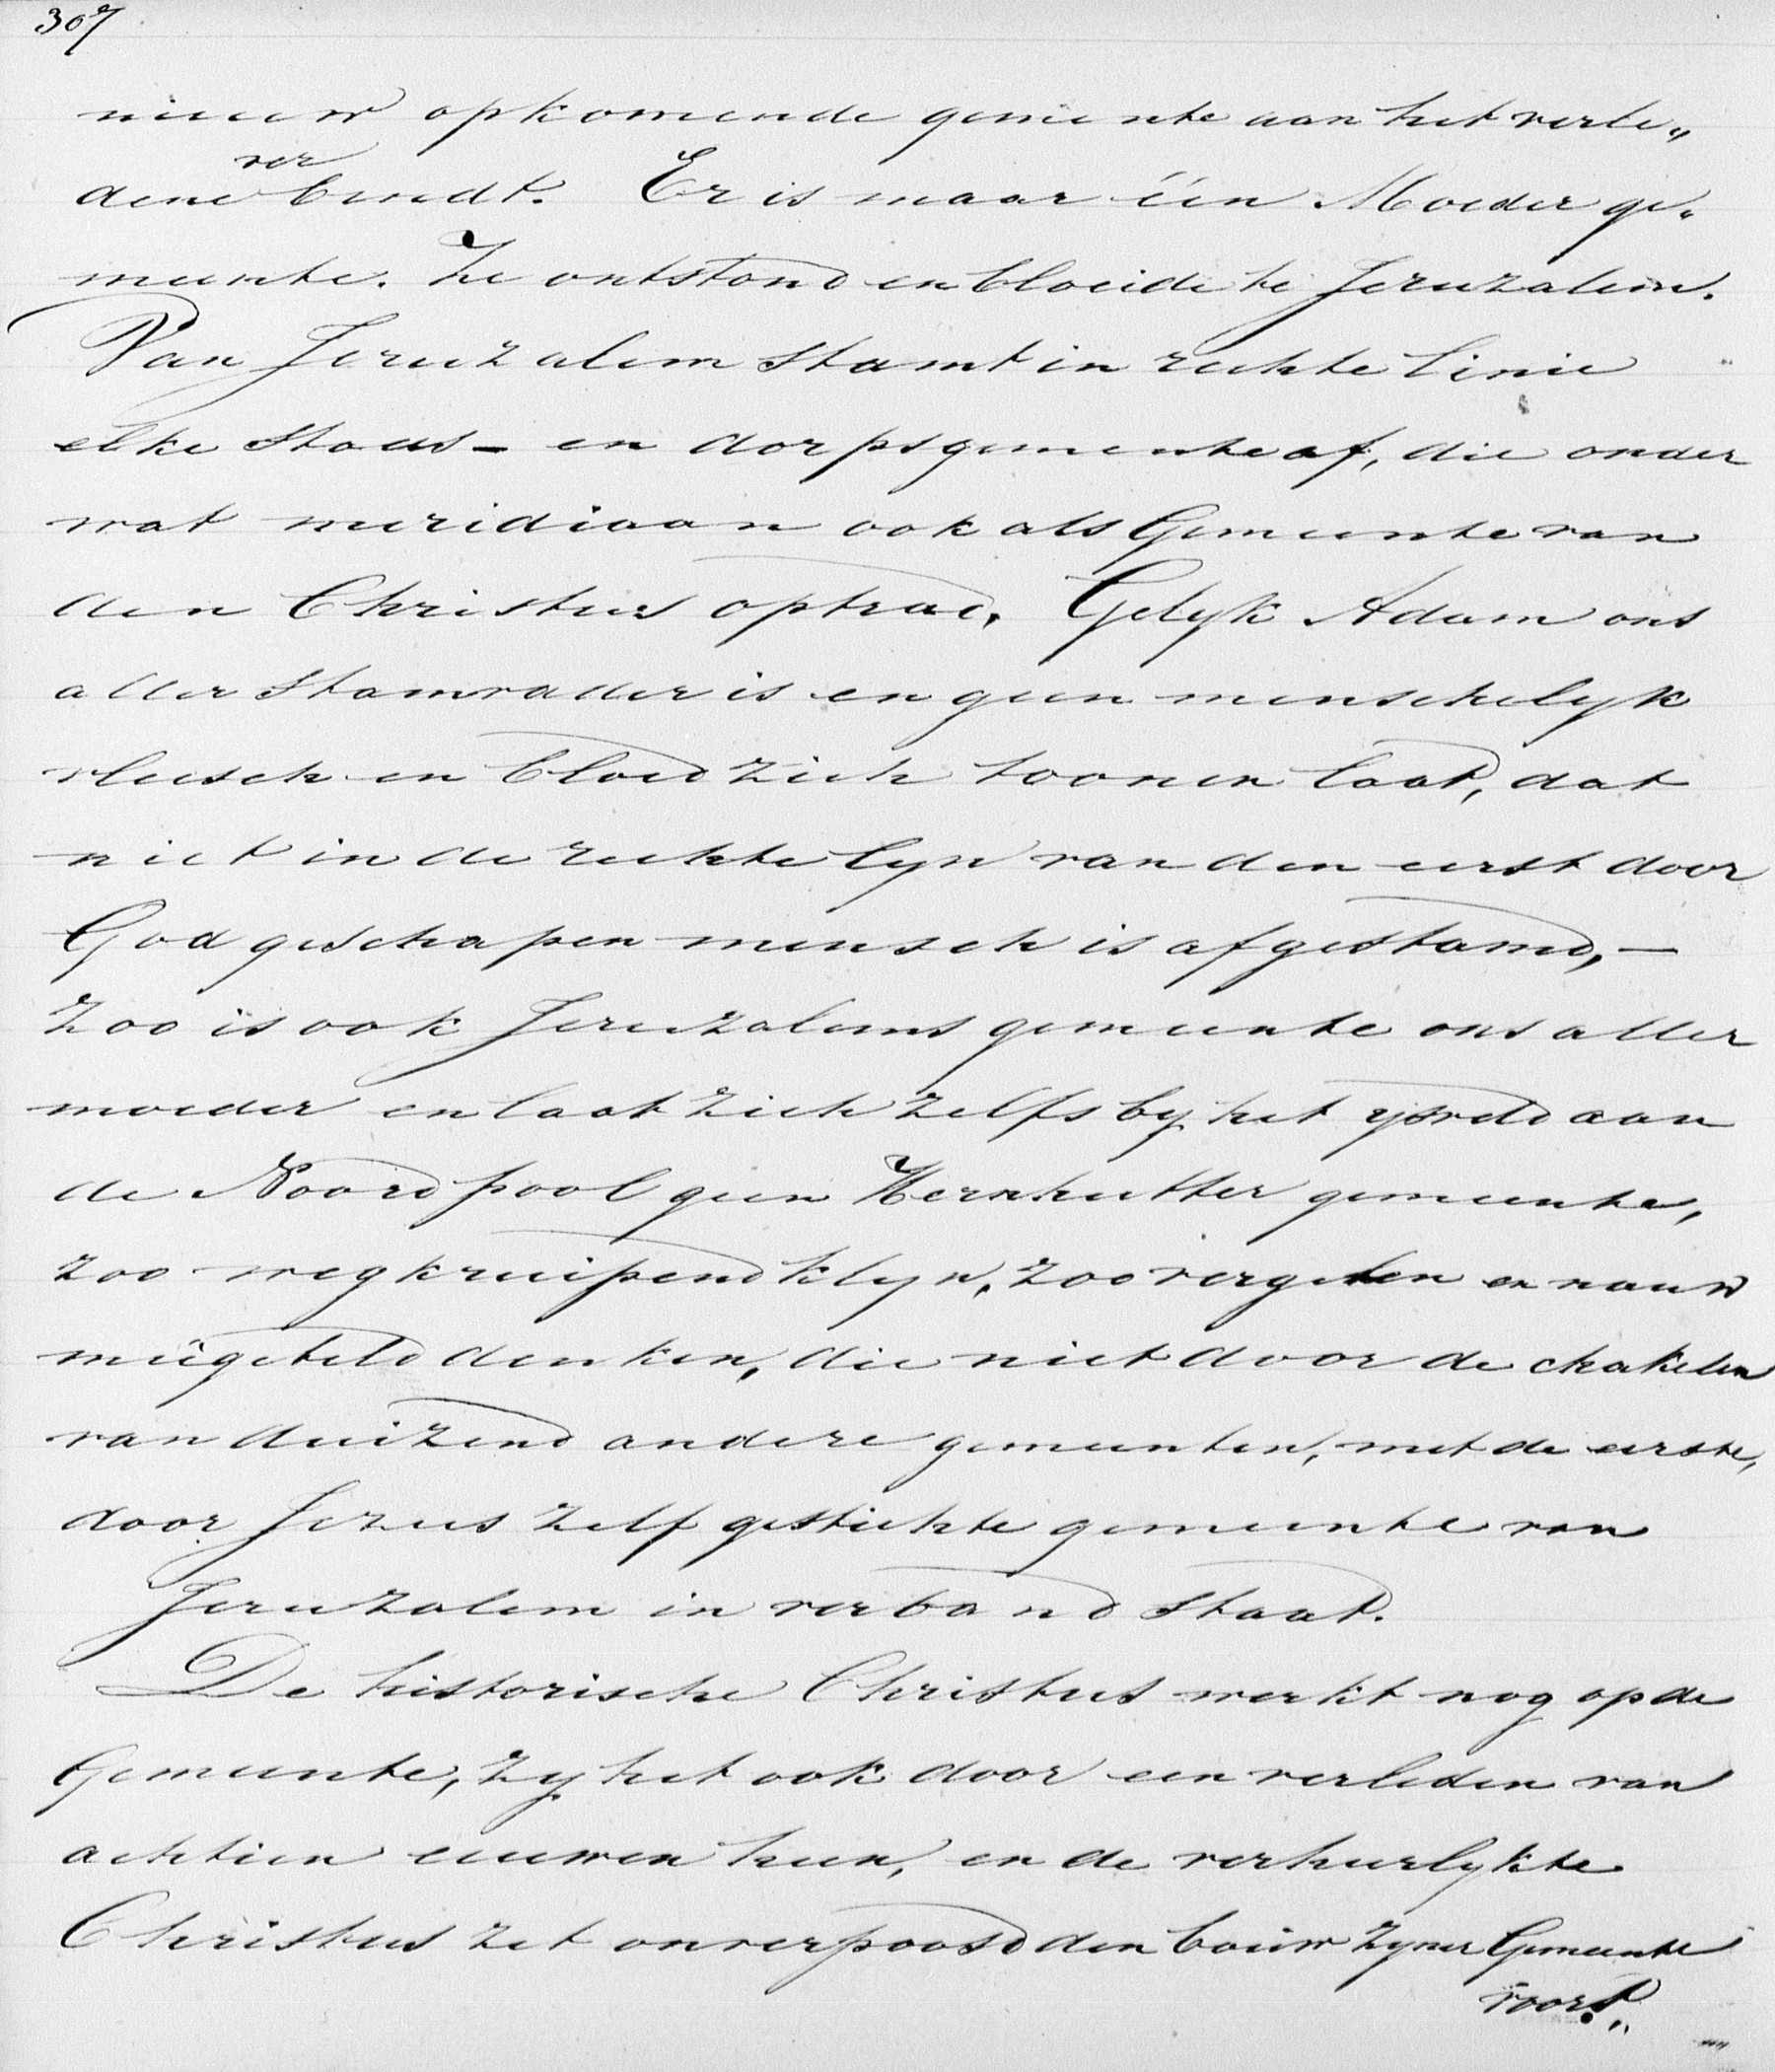 307
nieuw opkomende gemeente aan het verle„
dene verbindt. Er is maar één Moeder ge„
meente. Ze ontstond en bloeide te Jeruzalem.
Van Jeruzalem stamt in rechte linie
elke Stads- en dorpsgemeente af, die onder
wat meridiaan ook als Gemeente van
den Christus optrad. Gelyk Adam ons
aller stamvader is en geen menschelyk
vleesch en bloed zich toonen laat, dat
niet in de rechte lyn van den eerst door
God geschapen mensch is afgestamd, –
zoo is ook Jeruzalems gemeente ons aller
moeder en laat zich zelfs by het ysveld aan
de Noordpool geen Hernhutter gemeente,
zoo wegkruipend klyn, zoo vergeten en nauw
meêgeteld denken, die niet door de chakelen
van duizend andere gemeenten, met de eerste,
door Jezus zelf gestichte gemeente van
Jeruzalem in verband staat.
De historische Christus werkt nog op de
Gemeente, zy het ook door een verleden van
achtien eeuwen heen, en de verheerlykte
Christus zet onverpoosd den bouw zyner Gemeente
voort.